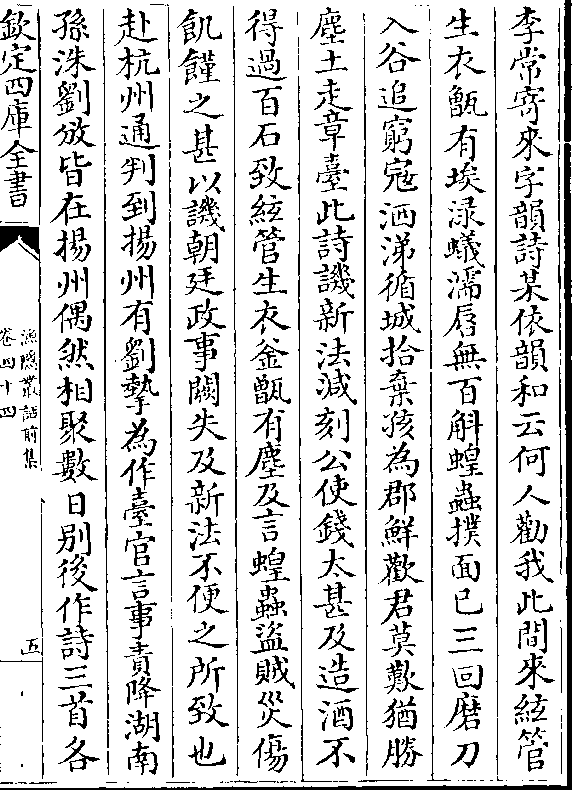 李常寄來字韻詩某依韻和云何人勸我此間來絃管
生衣甑有埃渌蟻濡脣無百斛蝗蟲撲面已三回磨刀
入谷追窮㓂洒涕循城拾棄孩為郡鮮歡君莫歎猶勝
塵土走章臺此詩譏新法減刻公使錢太甚及造酒不
得過百石致絃管生衣釜甑有塵及言蝗蟲盜賊災傷
飢饉之甚以譏朝廷政事闕失及新法不便之所致也
赴杭州通判到揚州有劉摯為作臺官言事責降湖南
孫洙劉攽皆在揚州偶然相聚數日別後作詩三首各
欽定四庫全書
漁隱叢話前集
卷四十四
五